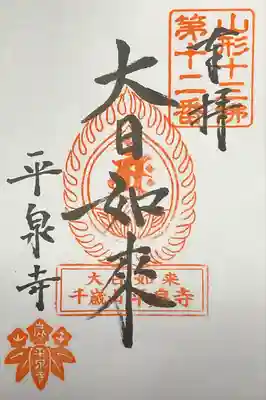 奉拝
山形十三佛
第十二番
大日如来
大日如来
千歳山平泉寺
平泉寺